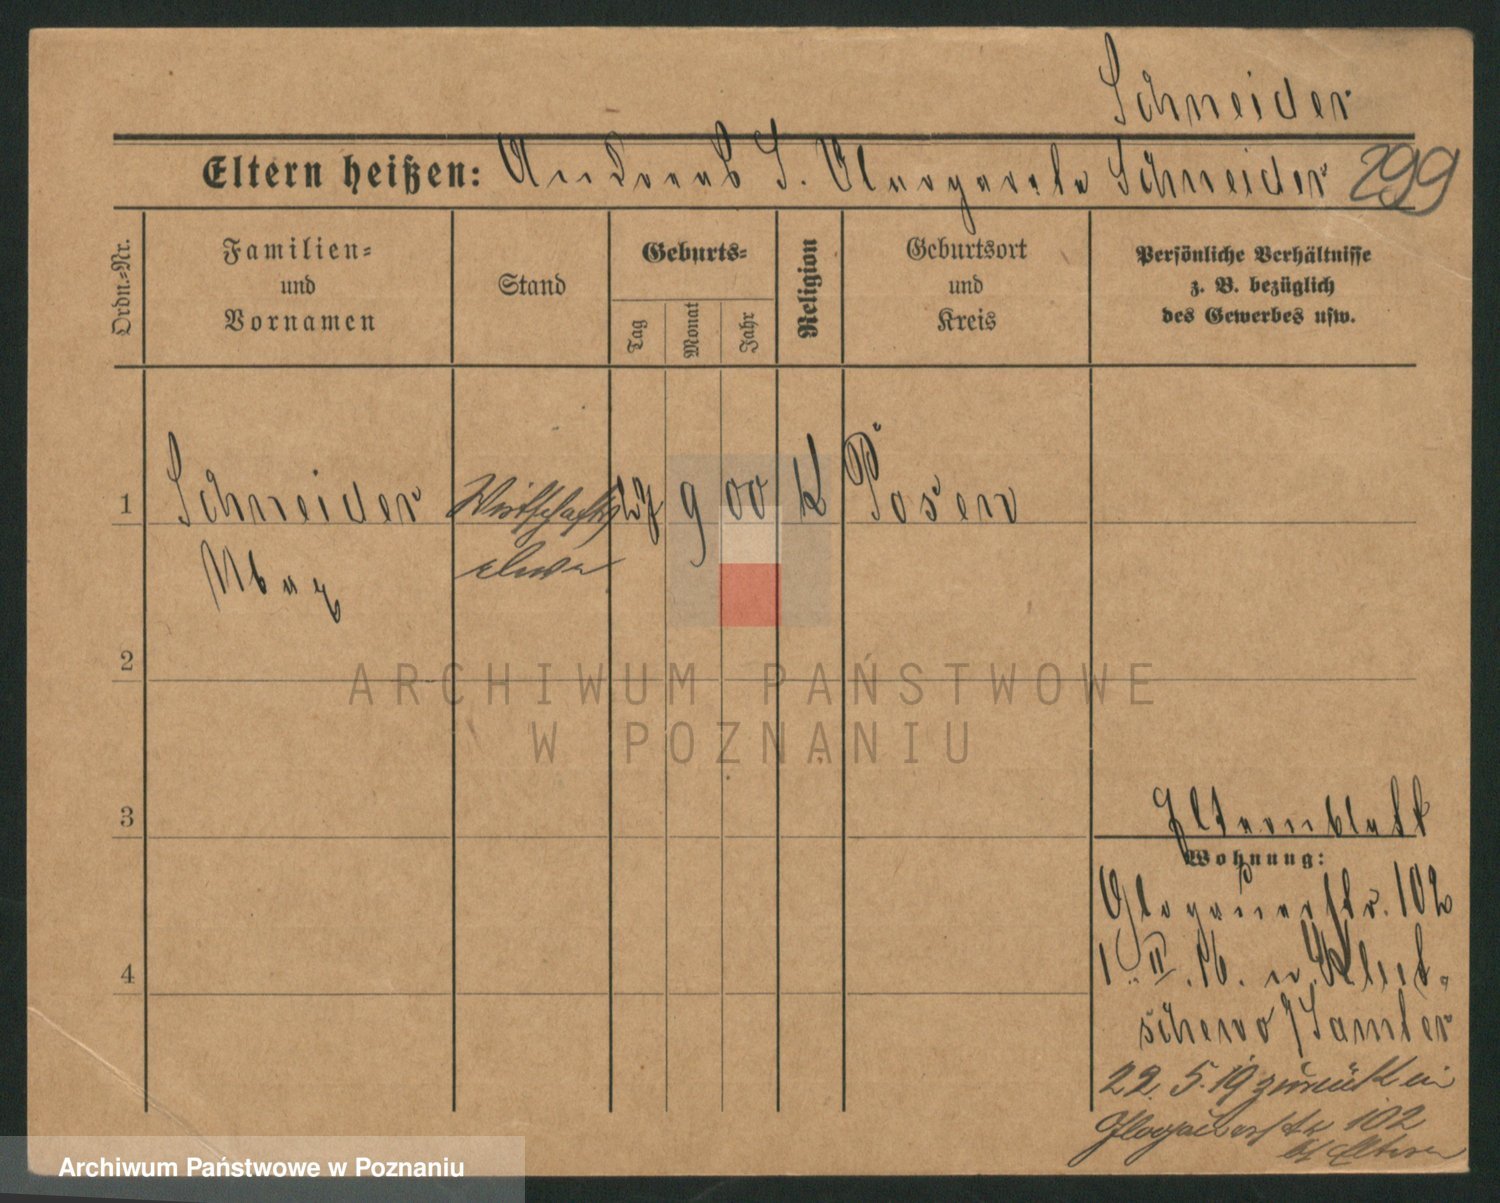 Schneider
Eltern heißen: Andreas S. Margarete Schneider 299
Ordn.-Nr.
Familien-
und
Vornamen
Stand
Geburts-
Tag
Monat
Jahr
Religion
Geburtsort
und
Kreis
Persönliche Verhältnisse
z. B. bezüglich
des Gewerbes usw.
1 Schneider Wirtschafts 27 9 00 K Posen
Max
eleve
2
3
4
Elternblatt
Wohnung:
Glogauerstr. 102
1. II. 16. n.
schewo / Samter
22. 5. 19 zurück in
Glogauerstr 102
bei Eltern
ARCHIWUM PAŃSTWOWE
W POZNANIU
Archiwum Państwowe w Poznaniu